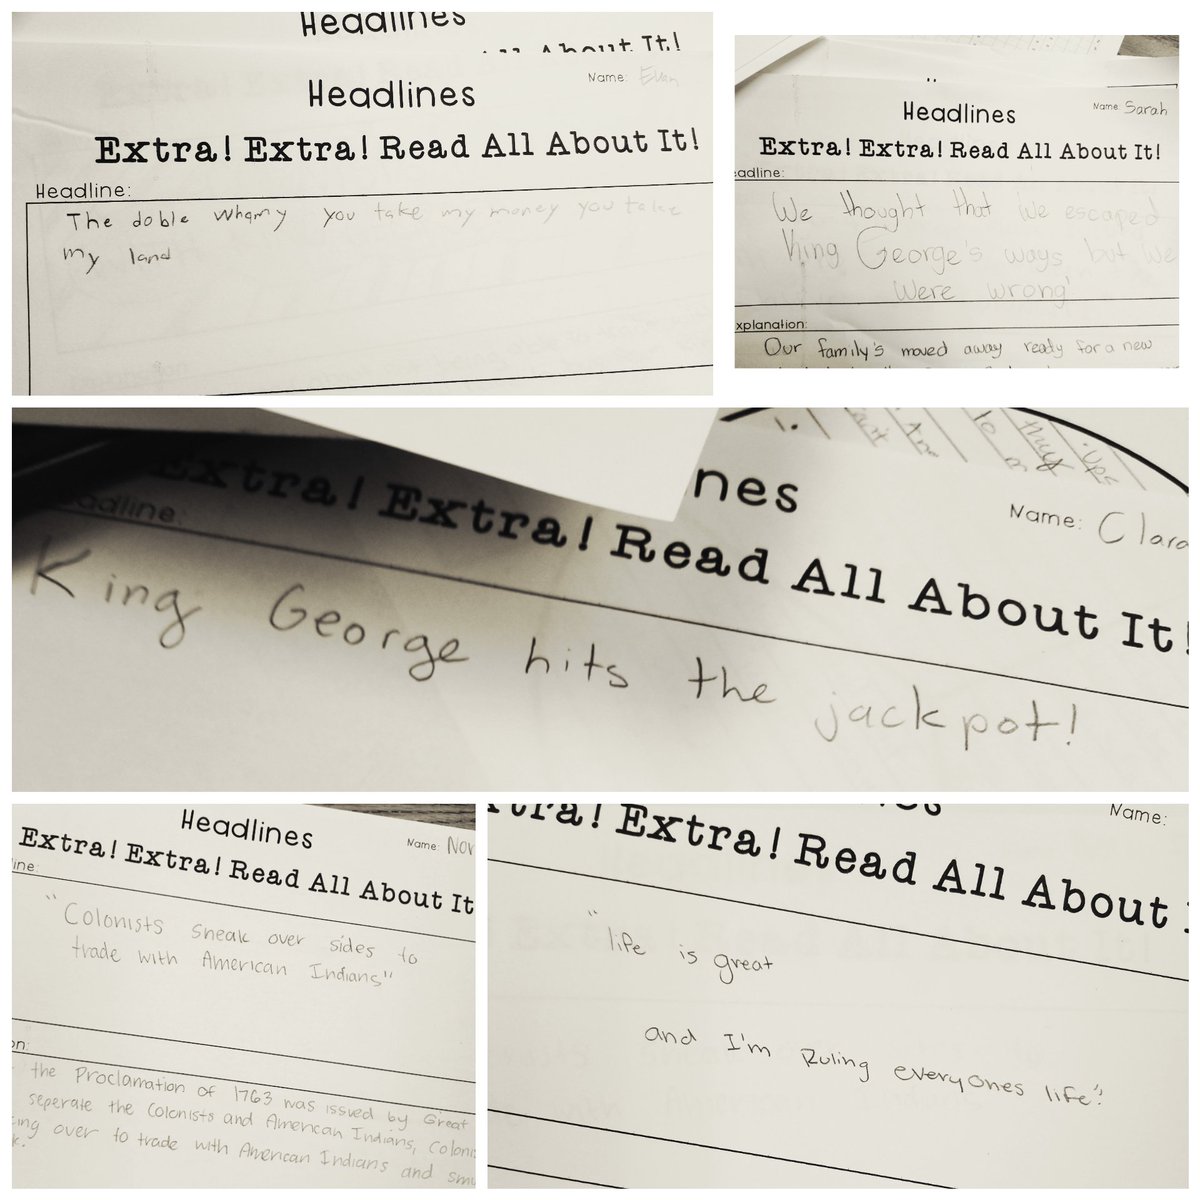 Headlines
All About It!
Name: Evan
Headlines
Extra! Extra! Read All About It!
Headline:
The doble whamy you take my money you take
my land
Headlines
Name: Sarah
Extra! Extra! Read All About It!
eadline:
We thought that we escaped
King George's ways but we
were wrong
xplanation:
Our family's moved away ready for a new
1.
nes
Name: Clara
Extra! Extra! Read All About It!
eadline:
King George hits the jackpot!
Headlines
Name: Nor
Extra! Extra! Read All About It
line:
"Colonists sneak over sides to
trade with American Indians"
on:
the Proclamation of 1763 was issued by Great
seperate the Colonists and American Indians, Colonis
ing over to trade with American Indians and smu
Name:
xtra! Extra! Read All About
"life is great
and I'm Ruling everyones life".